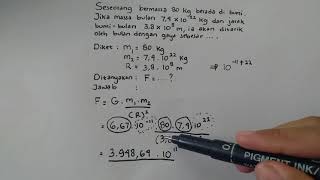 Seseorang bermassa 80 kg berada di bumi.
Jika massa bulan 7,4 x 10²² kg dan jarak
bumi-bulan 3,8 x 10⁸ m, ia akan ditarik
oleh bulan dengan gaya sebesar ....
Diket : m₁ = 80 kg
m₂ = 7,4 . 10²² kg
R = 3,8 . 10⁸ m
⇒ 10⁻¹¹⁺²²
Ditanyakan : F = ... ?
Jawab :
F = G . m₁ . m₂
(R)²
= 6,67 . 10⁻¹¹ . 80 . 7,4 . 10²²
(3,
= 3.948,64 . 10¹¹
PIGMENT INK